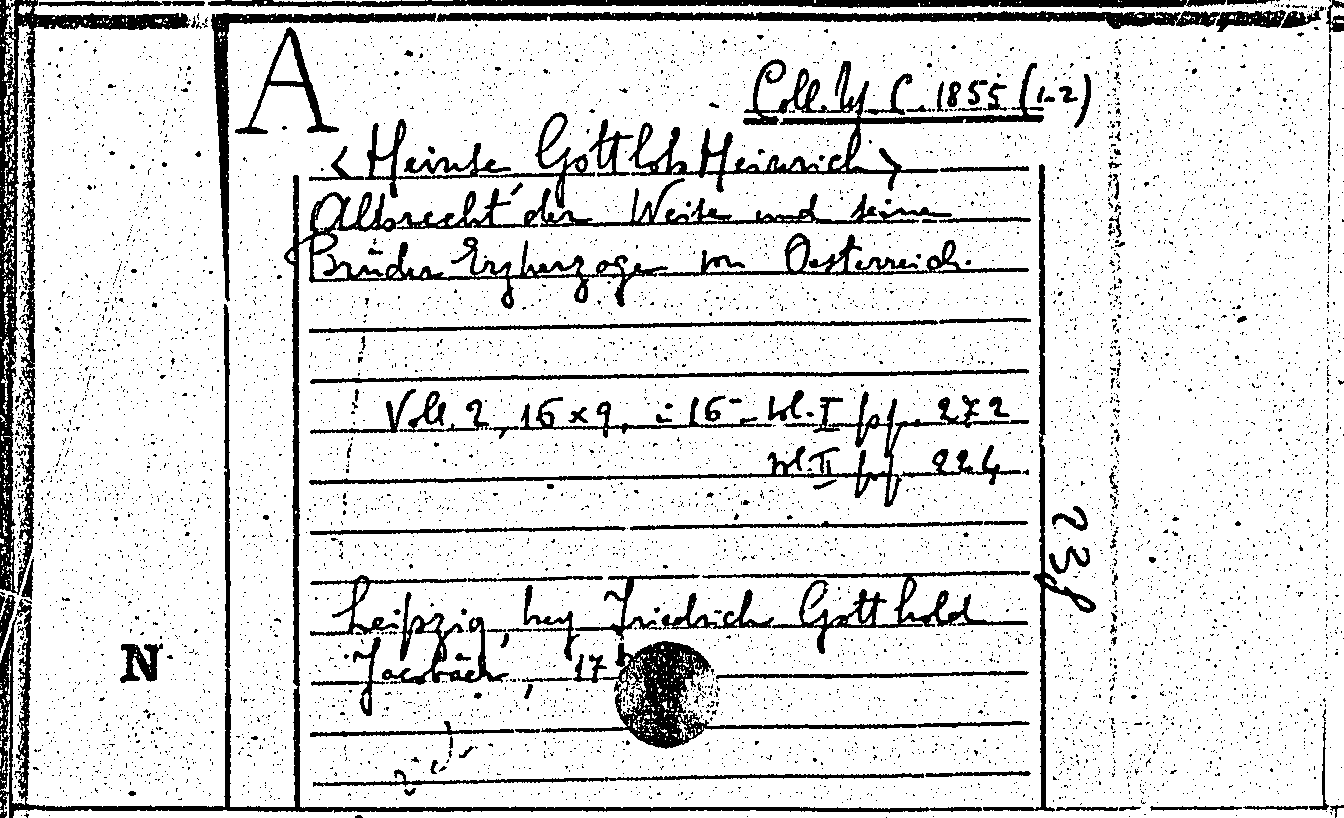 A
Coll. C. 1855 (1-2)
<Heinse Gottlob Heinrich>
Albrecht der Weise und seine
Brüder Erzherzoge von Oesterreich.
Voll. 2, 16 x 9, in 16 - vol. I pp. 272
vol. II pp. 224
238
Leipzig, bey Friedrich Gotthold
Jacobäer, 17
N